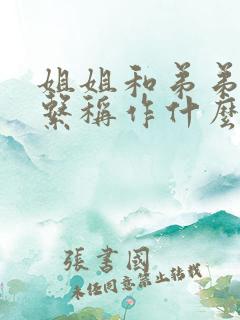 姐姐和弟弟
繫稱作什麼
張書國
未經同意禁止轉載